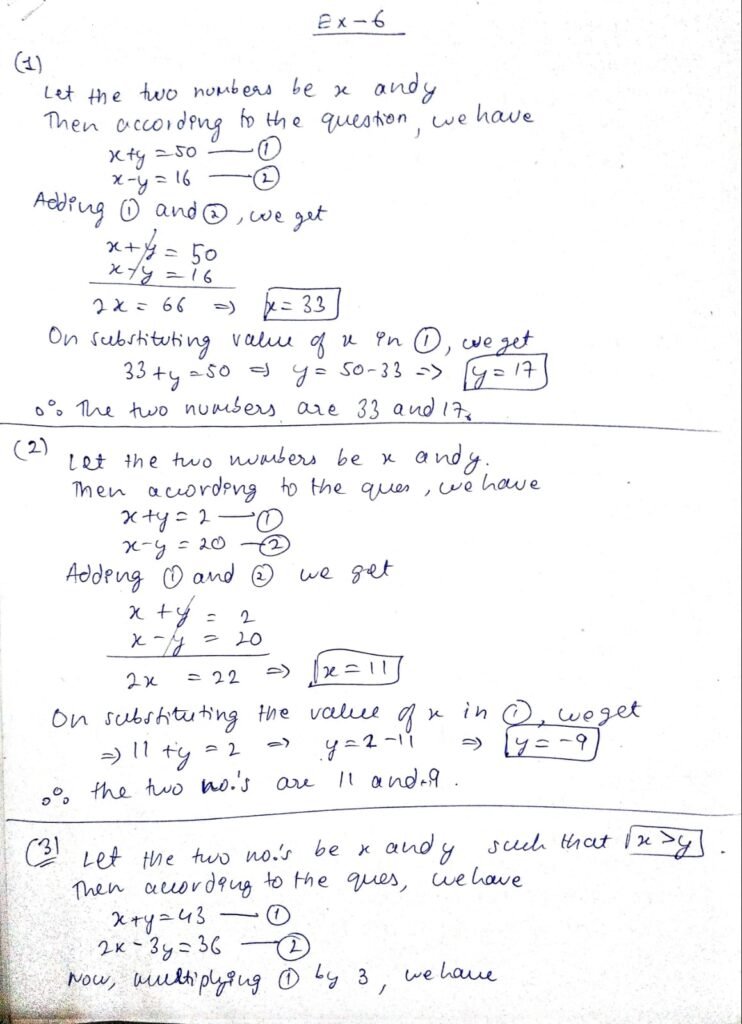 Ex-6
(1)
Let the two numbers be x and y
Then according to the question, we have
x+y = 50 — ①
x-y = 16 — ②
Adding ① and ②, we get
x+y = 50
x-y = 16
2x = 66 => x = 33
On substituting value of x in ①, we get
33+y = 50 => y = 50-33 => y = 17
∴ The two numbers are 33 and 17.
(2)
Let the two numbers be x and y.
Then according to the ques, we have
x+y = 2 — ①
x-y = 20 — ②
Adding ① and ② we get
x + y = 2
x - y = 20
2x = 22 => x = 11
On substituting the value of x in ①, we get
=> 11 + y = 2 => y = 2-11 => y = -9
∴ the two no.'s are 11 and -9.
(3) Let the two no.'s be x and y such that x > y.
Then according to the ques, we have
x+y = 43 — ①
2x - 3y = 36 — ②
Now, multiplying ① by 3, we have